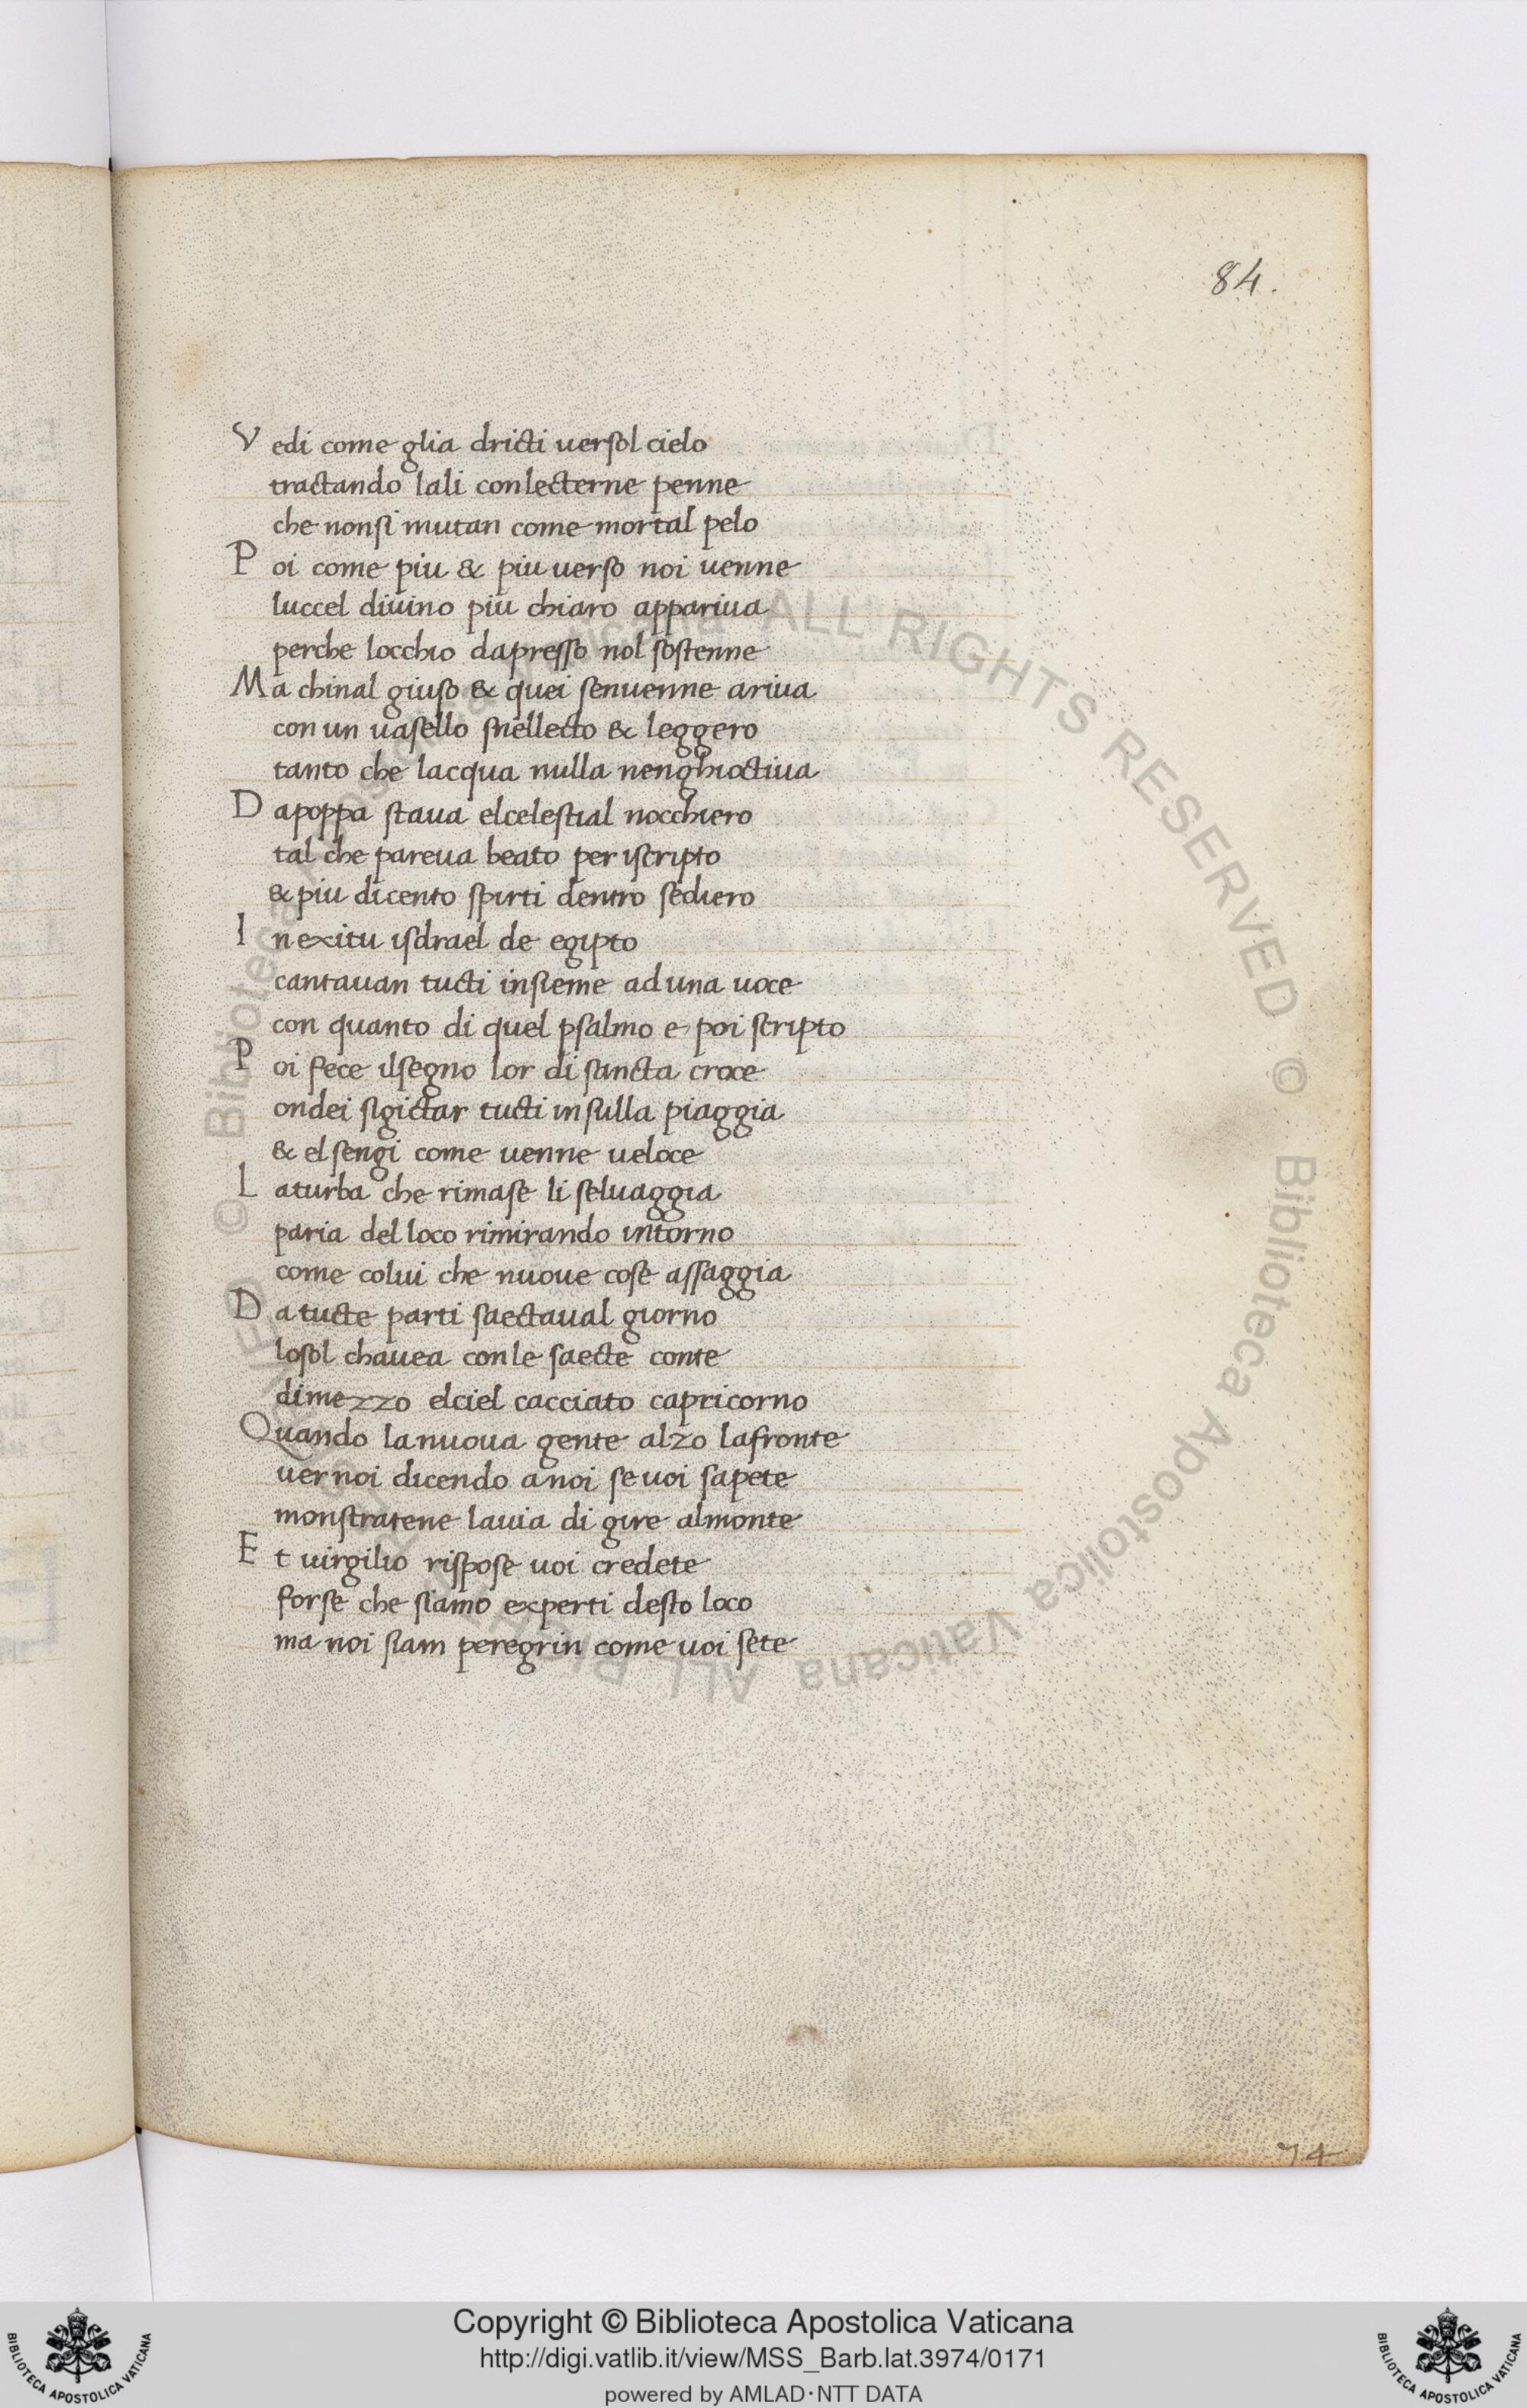 84.
Vedi come glia dricti uersol cielo
tractando lali conlecterne penne
che nonsi mutan come mortal pelo
Poi come piu & piu uerso noi uenne
luccel diuino piu chiaro appariua
perche locchio dapresso nol sostenne
Ma chinal giuso & quei senuenne ariua
con un uasello snellecto & leggero
tanto che lacqua nulla nenghioctiua
Dapoppa staua elcelestial nocchiero
tal che pareua beato per iscripto
& piu dicento spirti dentro sediero
In exitu isdrael de egipto
cantauan tucti insieme ad una uoce
con quanto di quel psalmo e poi scripto
Poi fece ilsegno lor di sancta croce
ondei sigictar tucti in sulla piaggia
& el sengi come uenne ueloce
Laturba che rimase li seluaggia
paria del loco rimirando intorno
come colui che nuoue cose assaggia
Da tucte parti saectaual giorno
losol chauea conle saecte conte
dimezzo elciel cacciato capricorno
Quando lanuoua gente alzo lafronte
uer noi dicendo anoi se uoi sapete
monstratene lauia di gire almonte
Et uirgilio rispose uoi credete
forse che siamo experti desto loco
ma noi siam peregrin come uoi sete
74
© Biblioteca Apostolica Vaticana ALL RIGHTS RESERVED © Biblioteca Apostolica Vaticana ALL RIGHTS RESERVED
Copyright © Biblioteca Apostolica Vaticana
http://digi.vatlib.it/view/MSS_Barb.lat.3974/0171
powered by AMLAD·NTT DATA
BIBLIOTECA APOSTOLICA VATICANA
BIBLIOTECA APOSTOLICA VATICANA